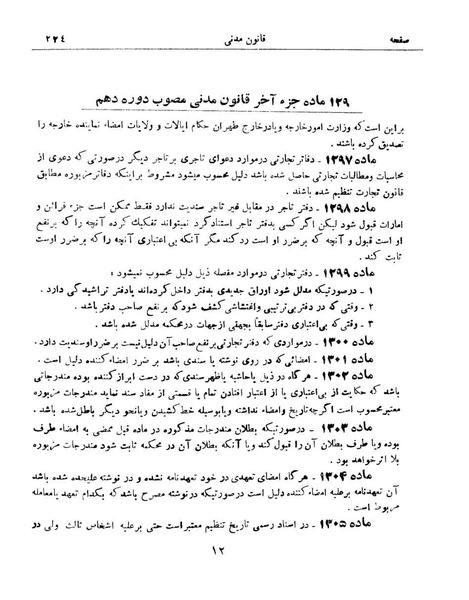 صفحه قانون مدنی ۲۲٤
۱۲۹ ماده جزء آخر قانون مدنی مصوب دوره دهم
براین است که وزارت امورخارجه ویادرخارج طهران حکام ایالات و ولایات امضاء نماینده خارجه را
تصدیق کرده باشند .
ماده ۱۲۹۷ - دفاتر تجارتی درموارد دعوای تاجری برتاجر دیگر درصورتی که دعوی از
محاسبات ومطالبات تجارتی حاصل شده باشد دلیل محسوب میشود مشروط براینکه دفاترمزبوره مطابق
قانون تجارت تنظیم شده باشند .
ماده ۱۲۹۸ - دفتر تاجر در مقابل غیر تاجر سندیت ندارد فقط ممکن است جزء قرائن و
امارات قبول شود لیکن اگر کسی بدفتر تاجر استنادکرد نمیتواند تفکیک کرده آنچه را که برنفع
او است قبول و آنچه که برضرر او است رد کند مگر آنکه بی اعتباری آنچه را که برضرر اوست
ثابت کند .
ماده ۱۲۹۹ - دفتر تجارتی درموارد مفصله ذیل دلیل محسوب نمیشود :
۱ - درصورتیکه مدلل شود اوراق جدیدی بدفتر داخل کرده‌اند یادفتر تراشیدگی دارد .
۲ - وقتی که در دفتر بی‌ترتیبی واغتشاشی کشف شود که برنفع صاحب دفتر باشد .
۳ - وقتی که بی‌اعتباری دفتر سابقاً بجهتی ازجهات درمحکمه مدلل شده باشد .
ماده ۱۳۰۰ - درمواردی که دفتر تجارتی برنفع صاحب آن دلیل نیست برضرر اوسندیت دارد .
ماده ۱۳۰۱ - امضائی که در روی نوشته یا سندی باشد برضرر امضاء کننده دلیل است .
ماده ۱۳۰۲ - هرگاه در ذیل یاحاشیه یاظهرسندی که در دست ابرازکننده بوده مندرجاتی
باشد که حکایت از بی‌اعتباری یا از اعتبار افتادن تمام یا قسمتی از مفاد سند نماید مندرجات مزبوره
معتبر محسوب است اگرچه تاریخ وامضاء نداشته ویابوسیله خط کشیدن ویانحو دیگر باطل شده باشد .
ماده ۱۳۰۳ - درصورتیکه بطلان مندرجات مذکوره در ماده قبل ممضی به امضاء طرف
بوده ویا طرف بطلان آن را قبول کند ویا آنکه بطلان آن در محکمه ثابت شود مندرجات مزبوره
بلا اثرخواهد بود .
ماده ۱۳۰٤ - هرگاه امضای تعهدی در خود تعهدنامه نشده و در نوشته علیحده شده باشد
آن تعهدنامه برعلیه امضاء کننده دلیل است درصورتیکه درنوشته مصرح باشد که بکدام تعهد یامعامله
مربوط است .
ماده ۱۳۰۵ - در اسناد رسمی تاریخ تنظیم معتبر است حتی برعلیه اشخاص ثالث ولی در
۱۲